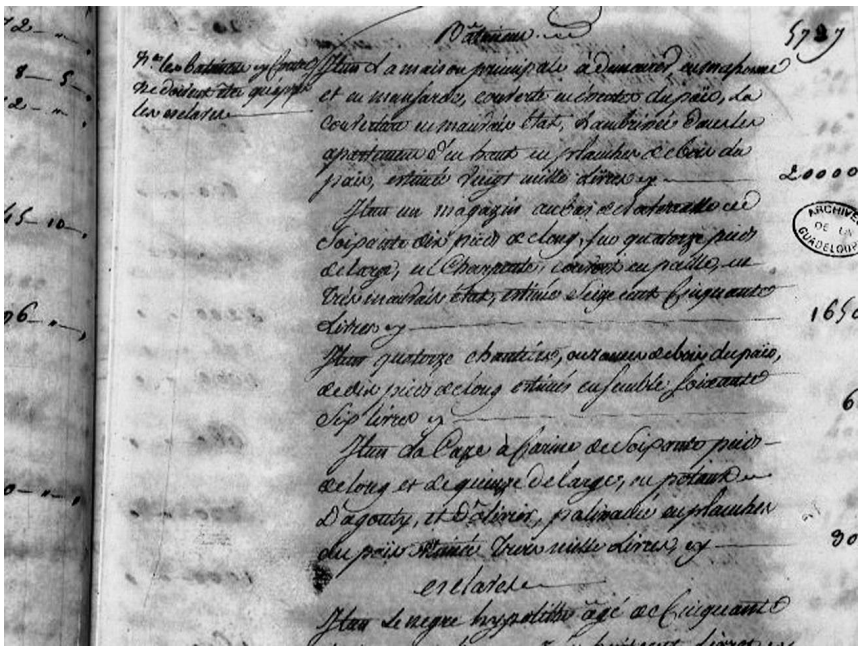 Bâtiments
5727
Nta les batiments cy contre
ne doivent être qu'après
les esclaves
Item La maison principale à demeurer, en maçonne
et en mansarde, couverte en essentes du païs, la
couverture en mauvais état, Lambrissée dans les
apartemens d'en haut en planches de bois du
païs, estimée vingt mille livres cy 20000
Item un magazin au bas de la
Soixante dix pieds de long, sur quatorze pieds
de large, en Charpente, couvert en paille, en
très mauvais état, estimé Seize cent Cinquante
Livres cy 1650
Item quatorze chantiers, de bois du païs,
de dix pieds de long estimés ensemble Soixante
Sept livres cy 6
Item La Caze à farine de Soixante pieds
de long et de quinze de large, en poteaux
D'agouty, et D'olivier, palissadée en planches
du païs estimée trois mille Livres, cy 30
esclaves
Item Le negre hypolithe âgé de Cinquante
ARCHIVES
DE LA
GUADELOUPE
72 - "
8 - 5
72 - "
45 - 10
96 - "
0 - " - "